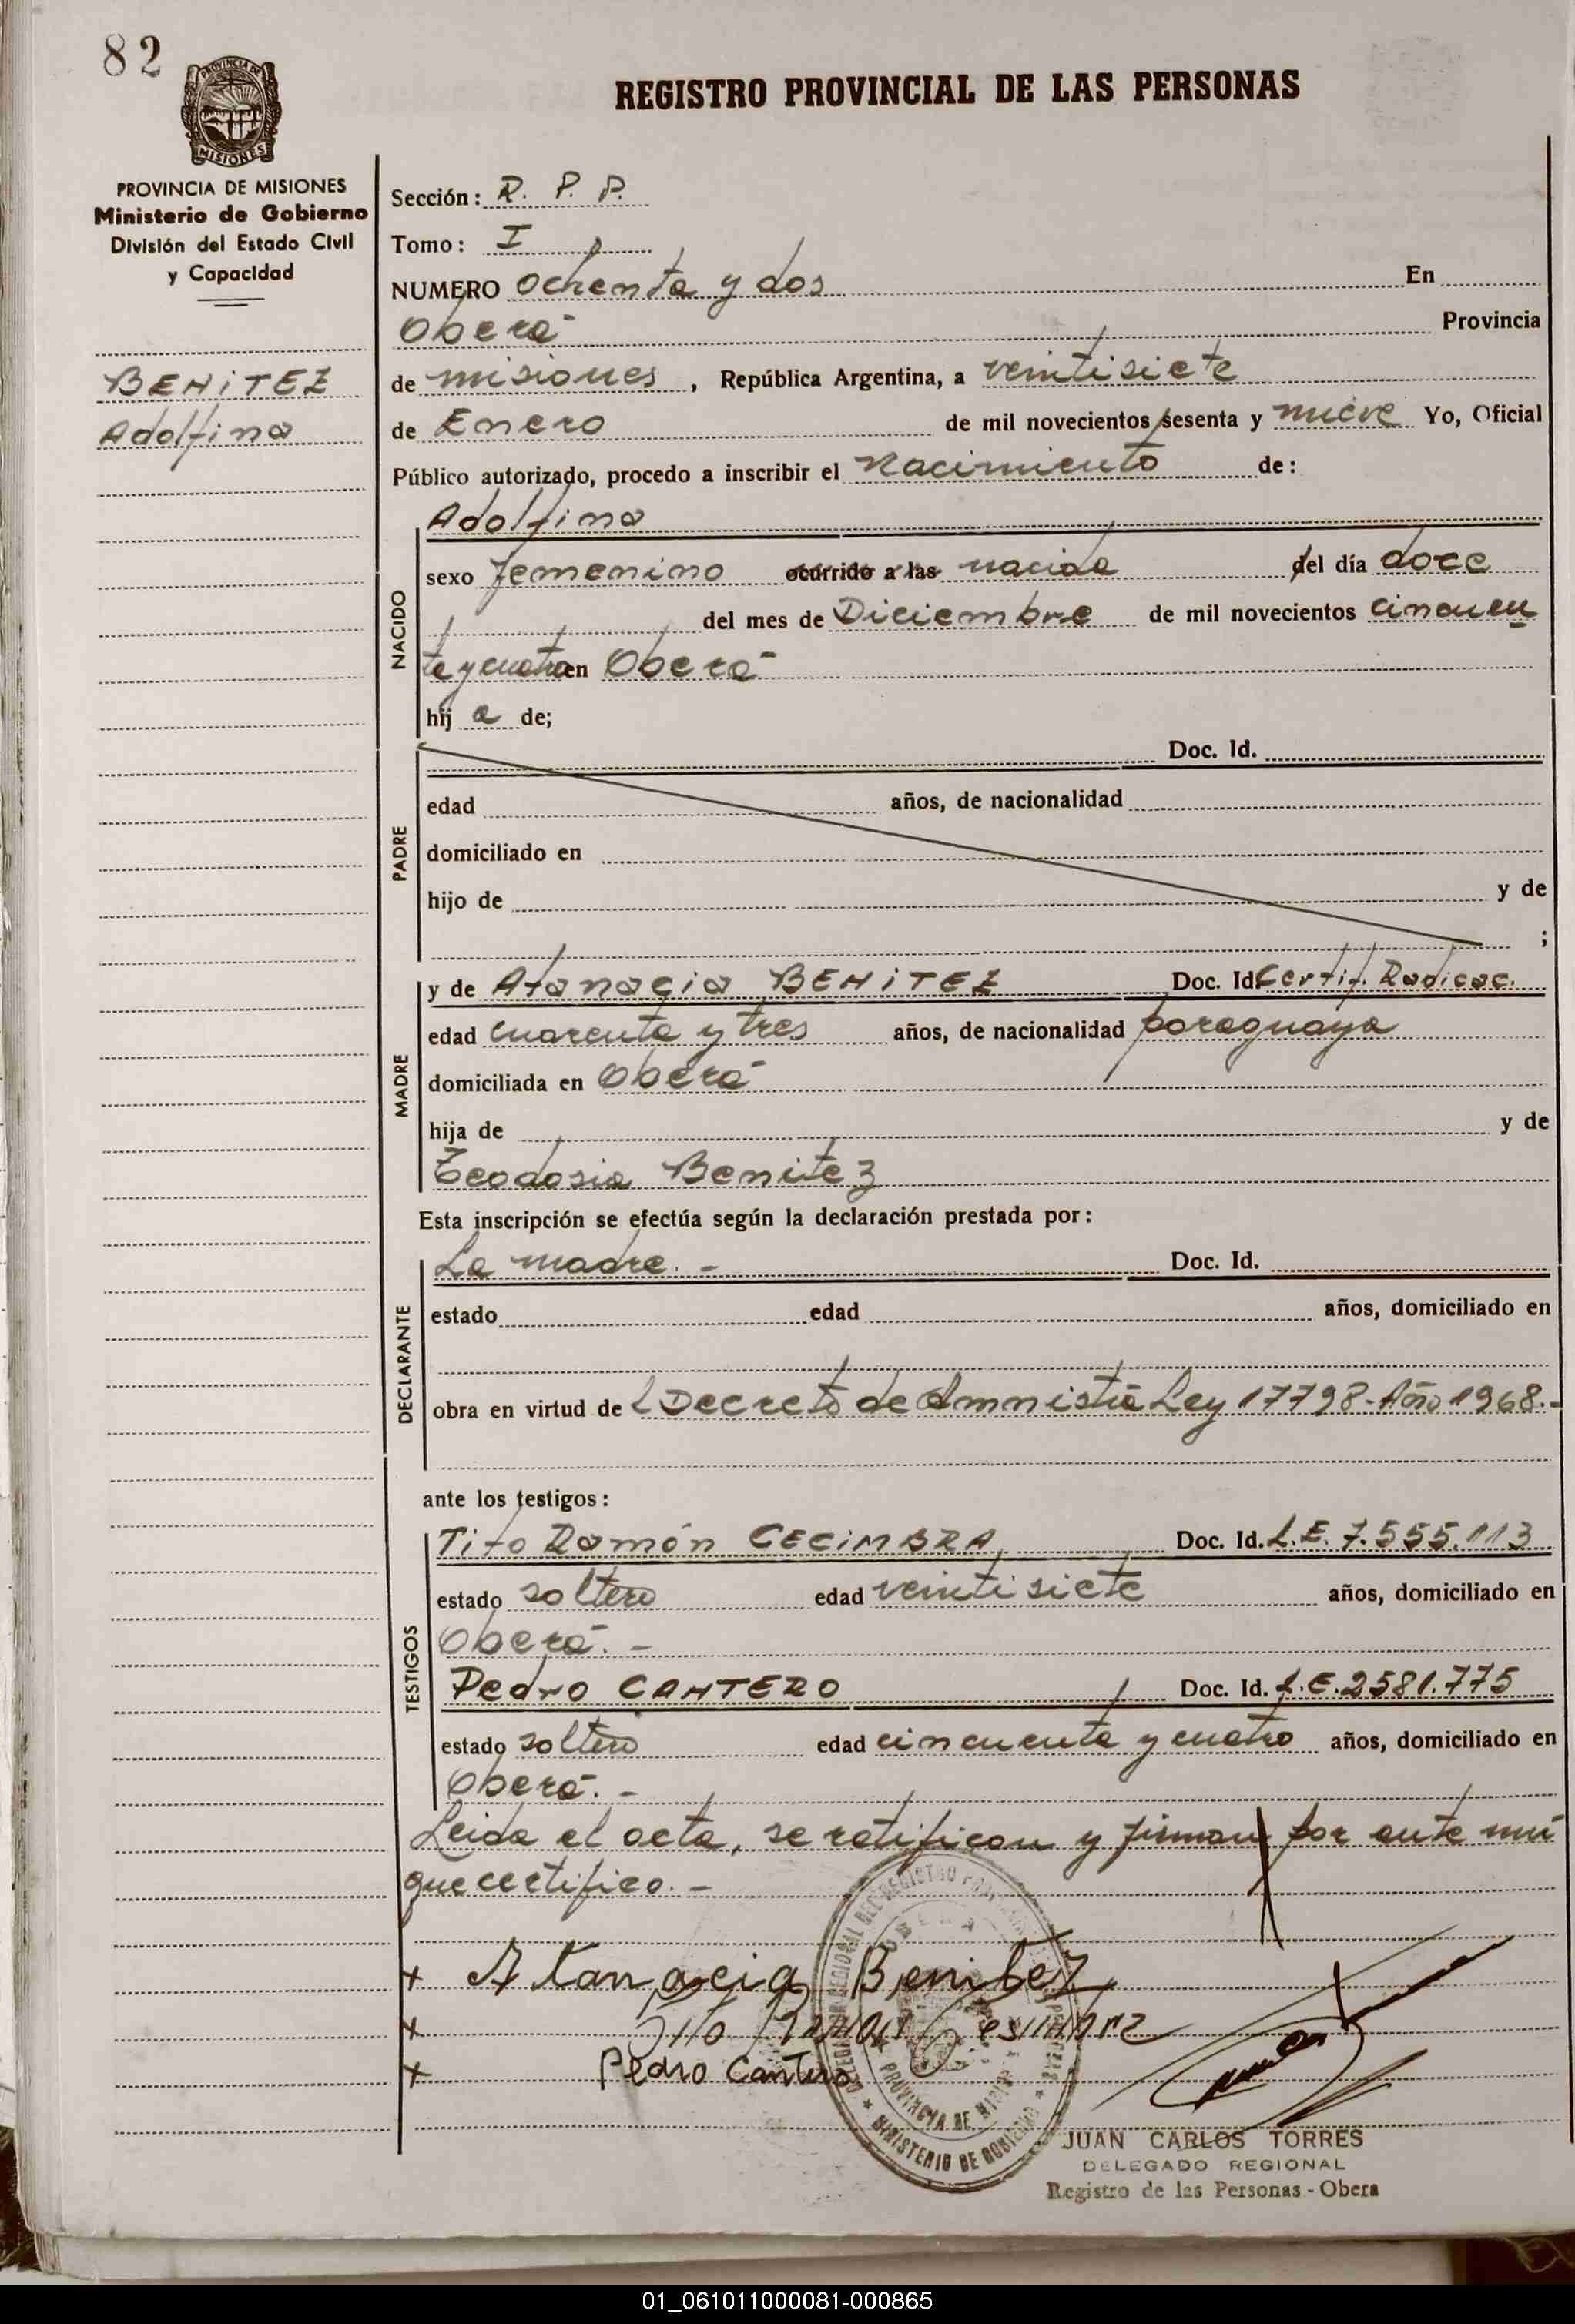 82
PROVINCIA DE
MISIONES
REGISTRO PROVINCIAL DE LAS PERSONAS
PROVINCIA DE MISIONES
Ministerio de Gobierno
División del Estado Civil
y Capacidad
BENITEZ
Adolfina
Sección: R. P. P.
Tomo: I
NUMERO Ochenta y dos En
Oberá Provincia
de misiones, República Argentina, a veintisiete
de Enero de mil novecientos sesenta y nueve Yo, Oficial
Público autorizado, procedo a inscribir el Nacimiento de:
NACIDO
Adolfina
sexo femenino ocurrido a las nacida del día doce
del mes de Diciembre de mil novecientos cincuen
ta y cuatro en Oberá
hij a de;
PADRE
Doc. Id.
edad años, de nacionalidad
domiciliado en
hijo de y de
;
MADRE
y de Atanacia BENITEZ Doc. Id. Certif. Radicac.
edad cuarenta y tres años, de nacionalidad paraguaya
domiciliada en Oberá
hija de y de
Teodosia Benitez
Esta inscripción se efectúa según la declaración prestada por:
DECLARANTE
La madre. - Doc. Id.
estado edad años, domiciliado en
obra en virtud de l Decreto de Amnistía Ley 17798-Año 1968.-
ante los testigos:
TESTIGOS
Tito Ramón CECIMBRA Doc. Id. L.E. 7.555.113
estado soltero edad veintisiete años, domiciliado en
Oberá. -
Pedro CANTERO Doc. Id. L.E. 2581.775
estado soltero edad cincuenta y cuatro años, domiciliado en
Oberá. -
Leida el acta, se ratifican y firman por ante mí
que certifico. -
x Atanacia Benitez
x Tito Ramon
x Pedro Cantero
PROVINCIA DE MISIONES
MINISTERIO DE GOBIERNO
JUAN CARLOS TORRES
DELEGADO REGIONAL
Registro de las Personas - Obera
01_061011000081-000865